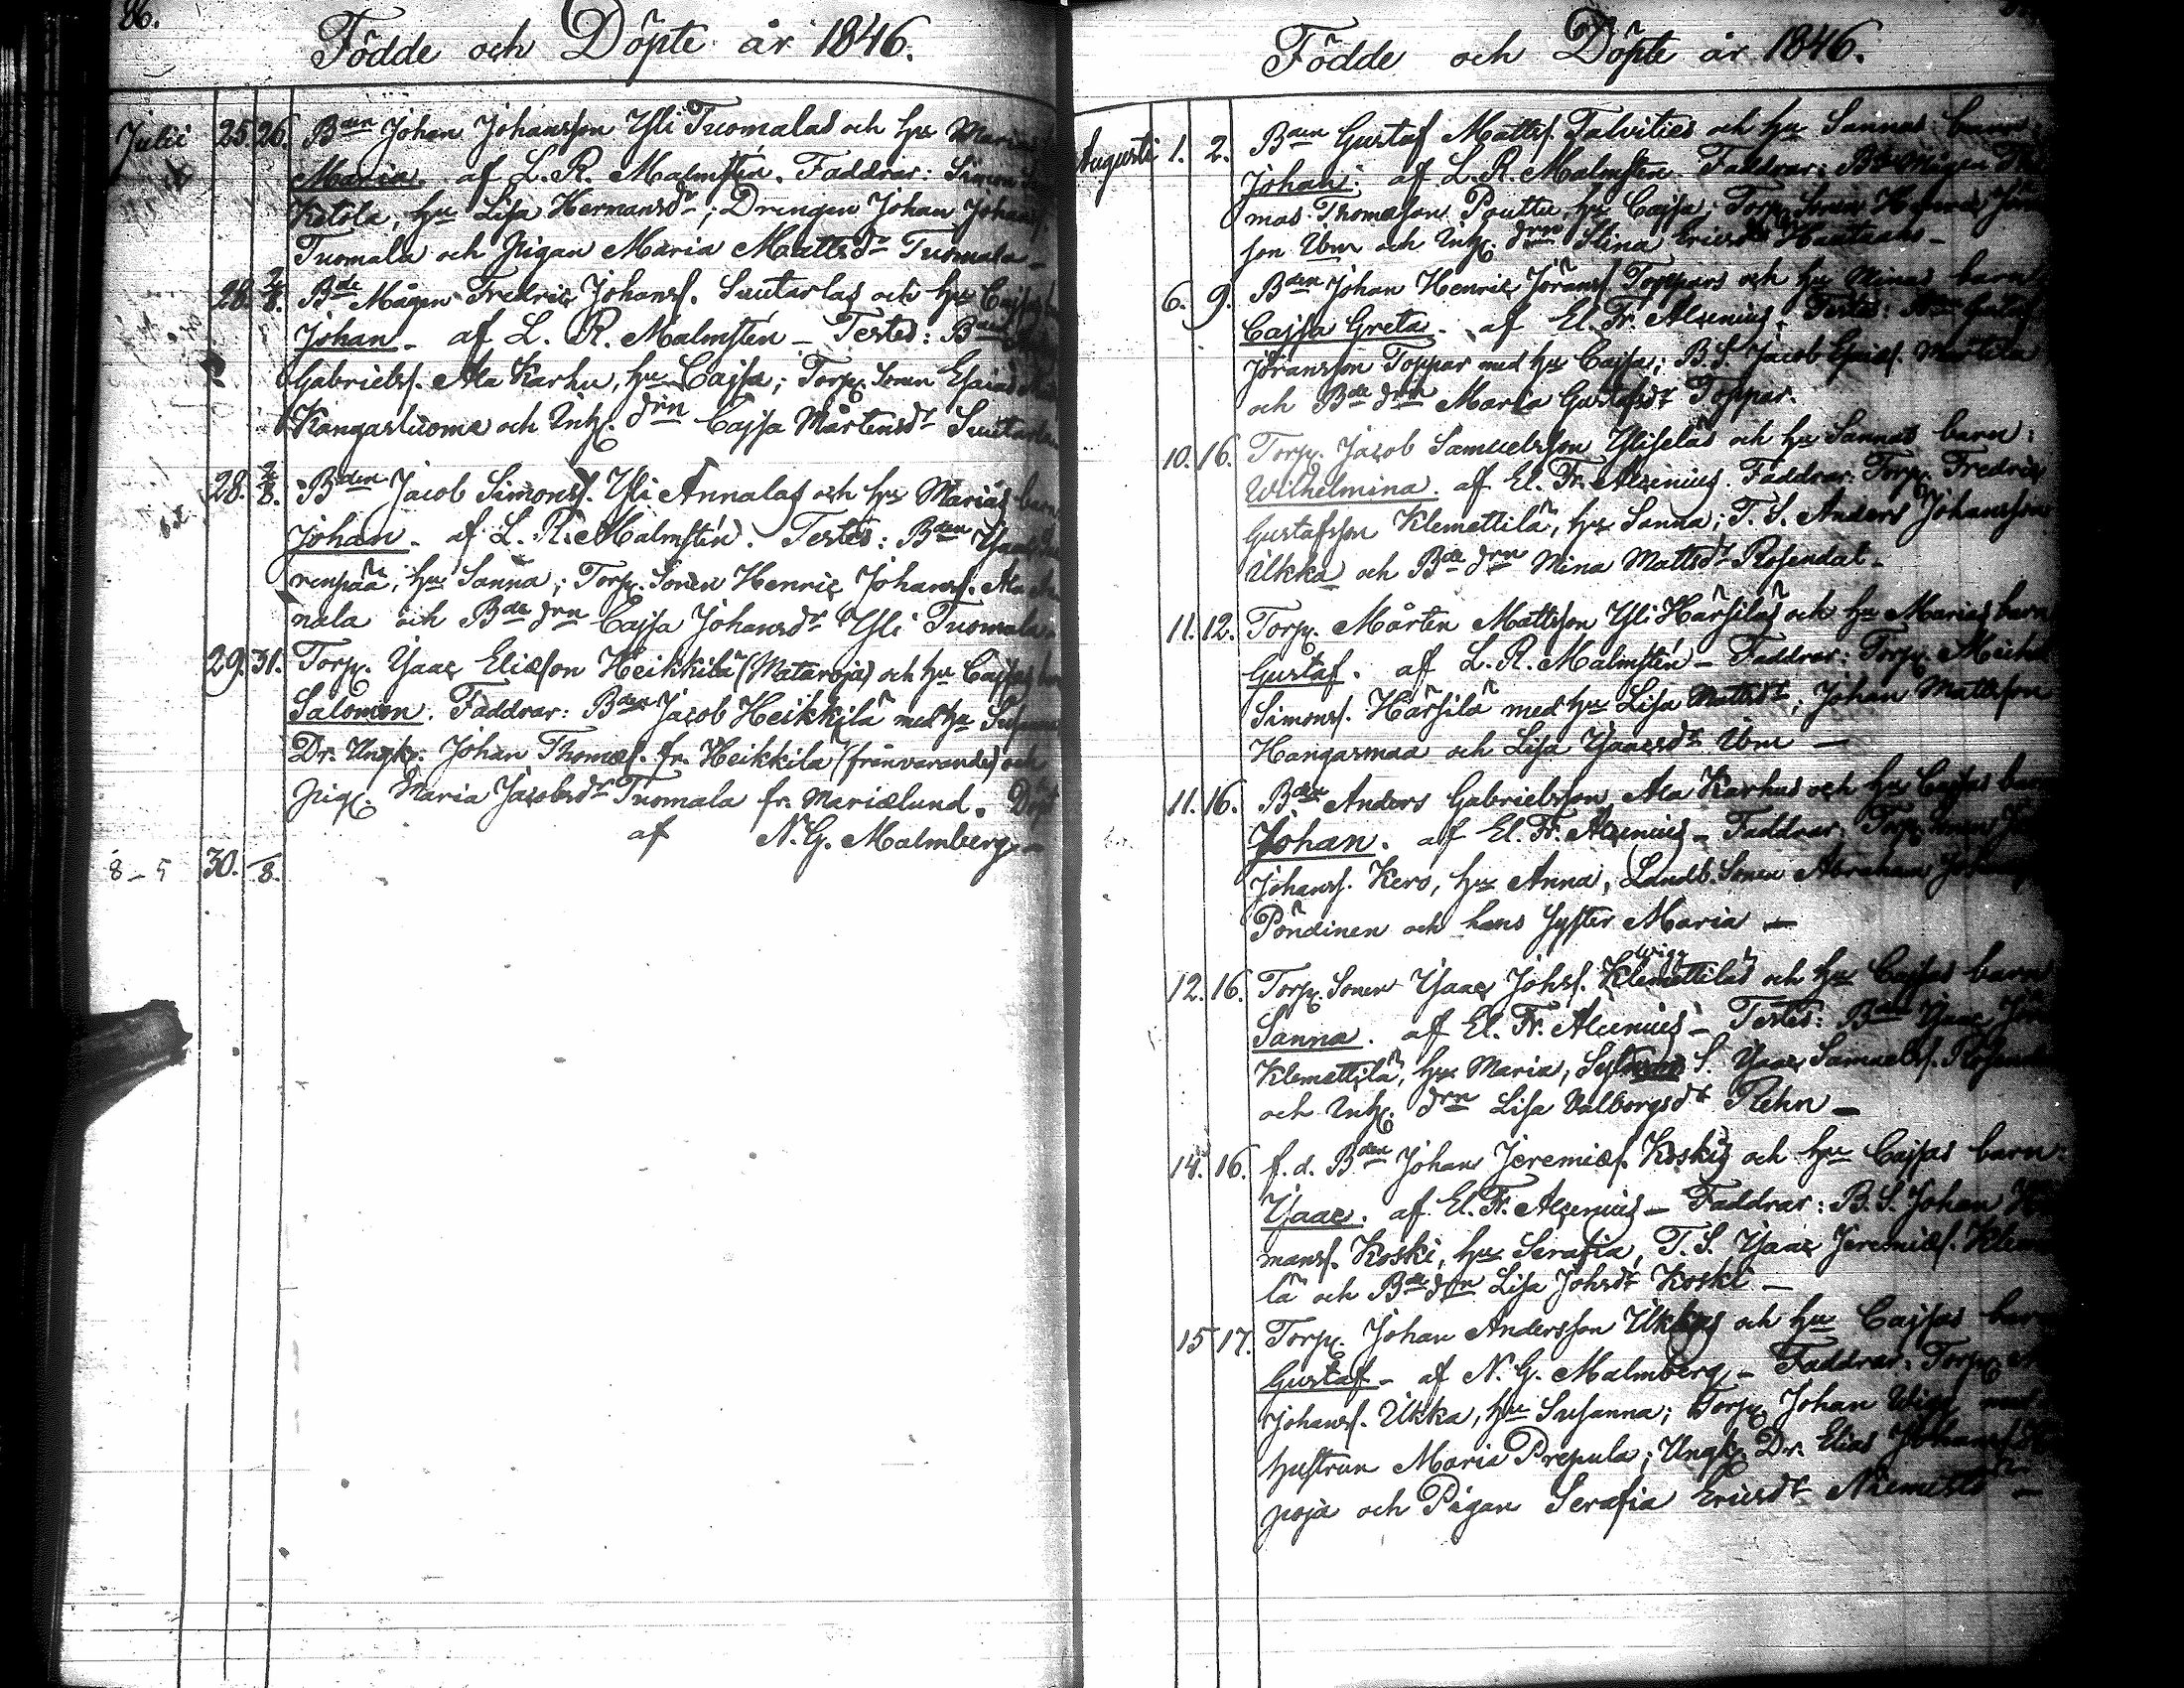 86.
Födde och Döpte år 1846.
Julii 25. 26. Bden Johan Johansson Yli Tuomalas och hu Maria
Maria. af L. R. Malmstén. Faddrar: Simon
Ketola, hu Lisa Hermansdr; Drengen Johan Johans.
Tuomala och Pigan Maria Mattsdr Tuomala –
28. 2/8. Bde Mågen Fredric Johanss. Suutarlas och hu Cajsas
Johan. – af L. R. Malmstén – Testes: Bden
Gabrielss. Ala Karhu, hu Cajsa; Torp. Sonen Esaias
Kangasluoma och Inh. drn Cajsa Mårtensdr Suutarla
28. 2/8. Bden Jacob Simonss. Yli Annalas och hu Marias barn
Johan. – af L. R. Malmstén. Testes: Bden Isaac
renpää, hu Sanna; Torp. Sonen Henric Johanss. Ala
nala och Bde drn Cajsa Johansdr Yli Tuomala.
29. 31. Torp. Isaac Eliæson Heikkilä (Mataroja) och hu Cajsas
Salomon. Faddrar: Bden Jacob Heikkilä med hu Susanna
Dr. Ungk. Johan Thomæs. fr. Heikkilä (frånvarande) och
Pig. Maria Jacobsdr Tuomala fr. Mariælund. Döpt
af N. G. Malmberg –
8 – 5 30. /8.
Födde och Döpte år 1846.
Augusti 1. 2. Bden Gustaf Mattss. Talvities och hu Sannas barn:
Johan. af L. R. Malmstén. Faddrar: Bde Mågen
mas Thomæson Pouttu, hu Cajsa; Torp. Sonen
son Ibm och Inh. drn Stina Ericsdr
6. 9. Bden Johan Henric Jöranss. Toppars och hu Minas barn
Cajsa Greta. af El. Fr. Alcenius. Testes: Bden Gustaf
Jöransson Toppar med hu Cajsa; B. S. Jacob Esaiæs. Martila
och Bde drn Maria Gustafsdr Toppar.
10. 16. Torp. Jacob Samuelsson Yliseläs och hu Sannas barn:
Wilhelmina. af El. Fr. Alcenius. Faddrar: Torp. Fredric
Gustafsson Klemettilä, hu Sanna; T. S. Anders Johansson
Ukka och Bde drn Mina Mattsdr Rosendal –
11. 12. Torp. Mårten Mattsson Yli Härsiläs och hu Marias barn
Gustaf. af L. R. Malmstén – Faddrar: Torp.
Simonss. Härsilä med hu Lisa Mattsdr; Johan Mattsson
Hangasmaa och Lisa Isaacsdr Ibm –
11. 16. Bden Anders Gabrielsson Ala Karhus och hu Cajsas barn
Johan. af El. Fr. Alcenius – Faddrar: Torp. Sonen
Johanss. Kero, hu Anna, Landb. Sonen Abraham
Pöndinen och hans syster Maria –
wigg
12. 16. Torp. Sonen Isaac Johss. Klemettiläs och hu Cajsas barn
Sanna. af El. Fr. Alcenius – Testes: Bden Isaac
Klemettilä, hu Maria, S. Isaac Samuelss.
och Inh. drn Lisa Valborgsdr Rehn –
14. 16. f. d. Bden Johan Jeremiæs. Koskis och hu Cajsas barn:
Isaac. af El. Fr. Alcenius – Faddrar: B. S. Johan
manss. Koski, hu Serafia, T. S. Isaac Jeremiæs.
lä och Bde drn Lisa Johsdr Koski –
15 17. Torp. Johan Andersson Ukkas och hu Cajsas barn
Gustaf – af N. G. Malmberg – Faddrar: Torp.
Johanss. Ukka, hu Susanna; Torp. Johan Wigg med
hustrun Maria Prepula; Ungk. Dr. Elias Johanss.
poja och Pigan Serafia Ericsdr Niemistö –